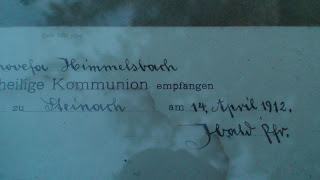 novefa Himmelsbach
heilige Kommunion empfangen
zu Steinach am 14. April 1912.
Ibald Pfr.